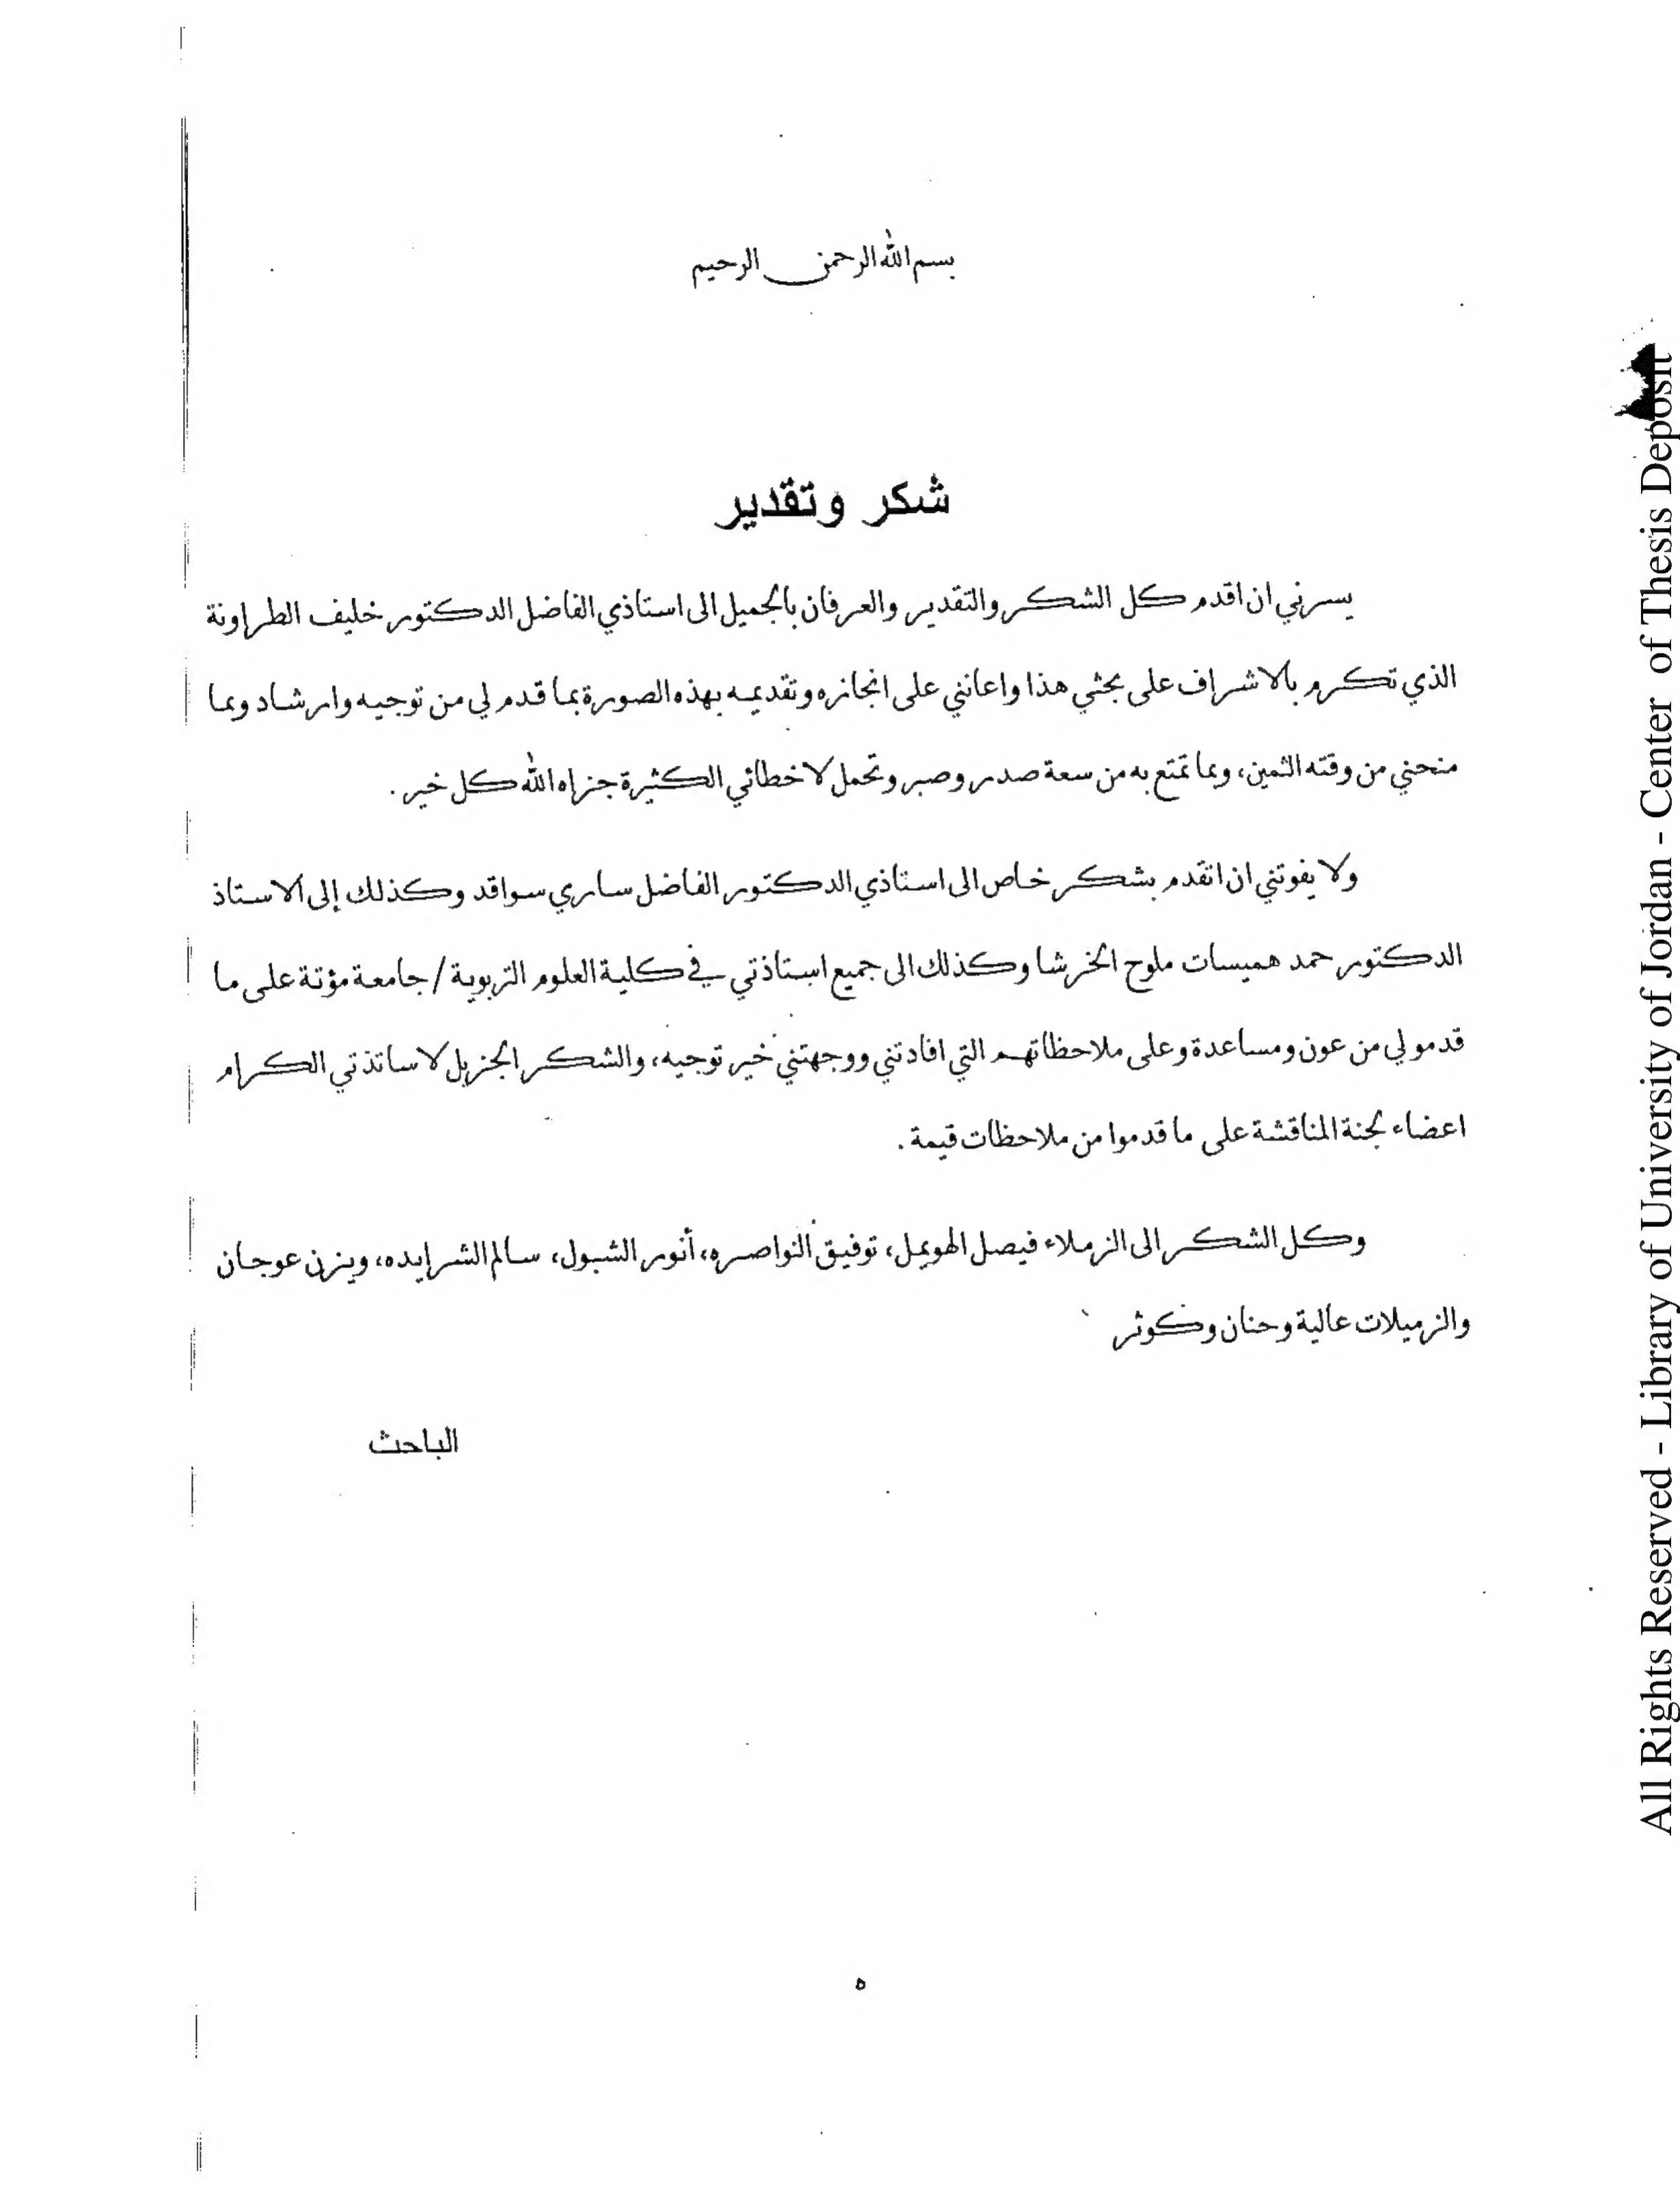 بسم الله الرحمن الرحيم
شكر وتقدير
يسرني ان اقدم كل الشكر والتقدير والعرفان بالجميل الى استاذي الفاضل الدكتور خليف الطراونة
الذي تكرم بالاشراف على بحثي هذا واعانني على انجازه وتقديمه بهذه الصورة بما قدم لي من توجيه وارشاد وبما
منحني من وقته الثمين، وبما تمتع به من سعة صدر وصبر وتحمل لاخطائي الكثيرة جزاه الله كل خير .
ولا يفوتني ان اتقدم بشكر خاص الى استاذي الدكتور الفاضل ساري سواقد وكذلك إلى الاستاذ
الدكتور حمد هميسات ملوح الخرشا وكذلك الى جميع استاذتي في كلية العلوم التربوية / جامعة مؤتة على ما
قدمو لي من عون ومساعدة وعلى ملاحظاتهم التي افادتني ووجهتني خير توجيه، والشكر الجزيل لاساتذتي الكرام
اعضاء لجنة المناقشة على ما قدموا من ملاحظات قيمة .
وكل الشكر الى الزملاء فيصل الهويمل، توفيق النواصره، أنور الشبول، سالم الشرايده، ويزن عوجان
والزميلات عالية وحنان وكوثر
الباحث
ه
All Rights Reserved - Library of University of Jordan - Center of Thesis Deposit